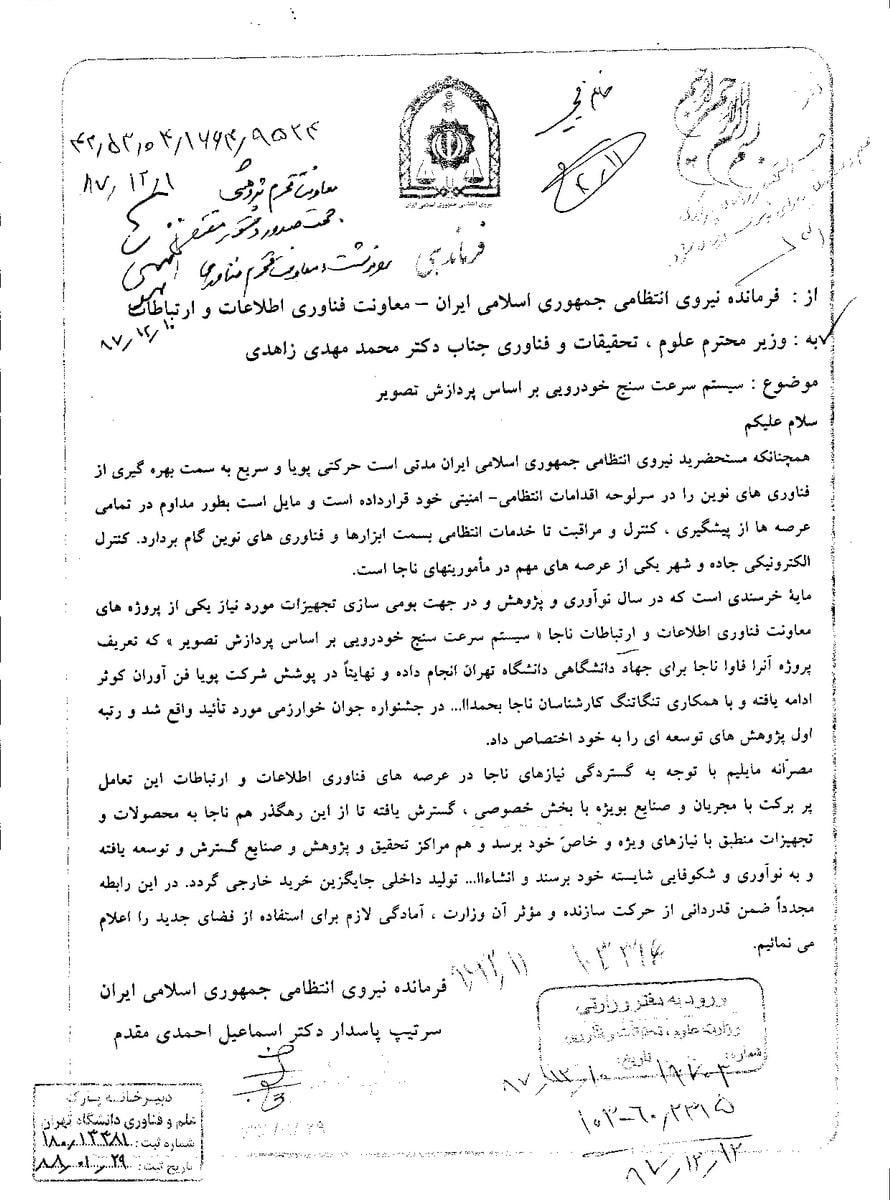 ۴۲٫۵۲٫۰۴٫۱۶۶۴٫۹۵۲۴
۸۷٫۱۲٫۱
نیروی انتظامی جمهوری اسلامی ایران
معاونت محترم پژوهشی
جهت صدور دستور مقتضی
فرماندهی
رونوشت: معاونت محترم فناوری
از : فرمانده نیروی انتظامی جمهوری اسلامی ایران – معاونت فناوری اطلاعات و ارتباطات
۸۷٫۱۲٫۱۰
به : وزیر محترم علوم ، تحقیقات و فناوری جناب دکتر محمد مهدی زاهدی
موضوع : سیستم سرعت سنج خودرویی بر اساس پردازش تصویر
سلام علیکم
همچنانکه مستحضرید نیروی انتظامی جمهوری اسلامی ایران مدتی است حرکتی پویا و سریع به سمت بهره گیری از
فناوری های نوین را در سرلوحه اقدامات انتظامی- امنیتی خود قرارداده است و مایل است بطور مداوم در تمامی
عرصه ها از پیشگیری ، کنترل و مراقبت تا خدمات انتظامی بسمت ابزارها و فناوری های نوین گام بردارد. کنترل
الکترونیکی جاده و شهر یکی از عرصه های مهم در مأموریتهای ناجا است.
مایهٔ خرسندی است که در سال نوآوری و پژوهش و در جهت بومی سازی تجهیزات مورد نیاز یکی از پروژه های
معاونت فناوری اطلاعات و ارتباطات ناجا « سیستم سرعت سنج خودرویی بر اساس پردازش تصویر » که تعریف
پروژه آنرا فاوا ناجا برای جهاد دانشگاهی دانشگاه تهران انجام داده و نهایتاً در پوشش شرکت پویا فن آوران کوثر
ادامه یافته و با همکاری تنگاتنگ کارشناسان ناجا بحمداا... در جشنواره جوان خوارزمی مورد تأئید واقع شد و رتبه
اول پژوهش های توسعه ای را به خود اختصاص داد.
مصرّانه مایلیم با توجه به گستردگی نیازهای ناجا در عرصه های فناوری اطلاعات و ارتباطات این تعامل
پر برکت با مجریان و صنایع بویژه با بخش خصوصی ، گسترش یافته تا از این رهگذر هم ناجا به محصولات و
تجهیزات منطبق با نیازهای ویژه و خاصّ خود برسد و هم مراکز تحقیق و پژوهش و صنایع گسترش و توسعه یافته
و به نوآوری و شکوفایی شایسته خود برسند و انشاءاا... تولید داخلی جایگزین خرید خارجی گردد. در این رابطه
مجدداً ضمن قدردانی از حرکت سازنده و مؤثر آن وزارت ، آمادگی لازم برای استفاده از فضای جدید را اعلام
می نمائیم.
فرمانده نیروی انتظامی جمهوری اسلامی ایران
سرتیپ پاسدار دکتر اسماعیل احمدی مقدم
ورود به دفتر وزارتی
وزارت علوم ، تحقیقات و فناوری
شماره:
تاریخ:
۱۹۷۰۴
۸۷٫۱۲٫۱۰
۱۰۳-۶۰٫۲۳۱۵
۸۷٫۱۲٫۱۲
دبیرخانه پارک
علم و فناوری دانشگاه تهران
شماره ثبت: ۱۸۰٫۱۳۳۸۱
تاریخ ثبت: ۸۸٫۰۱٫۲۹